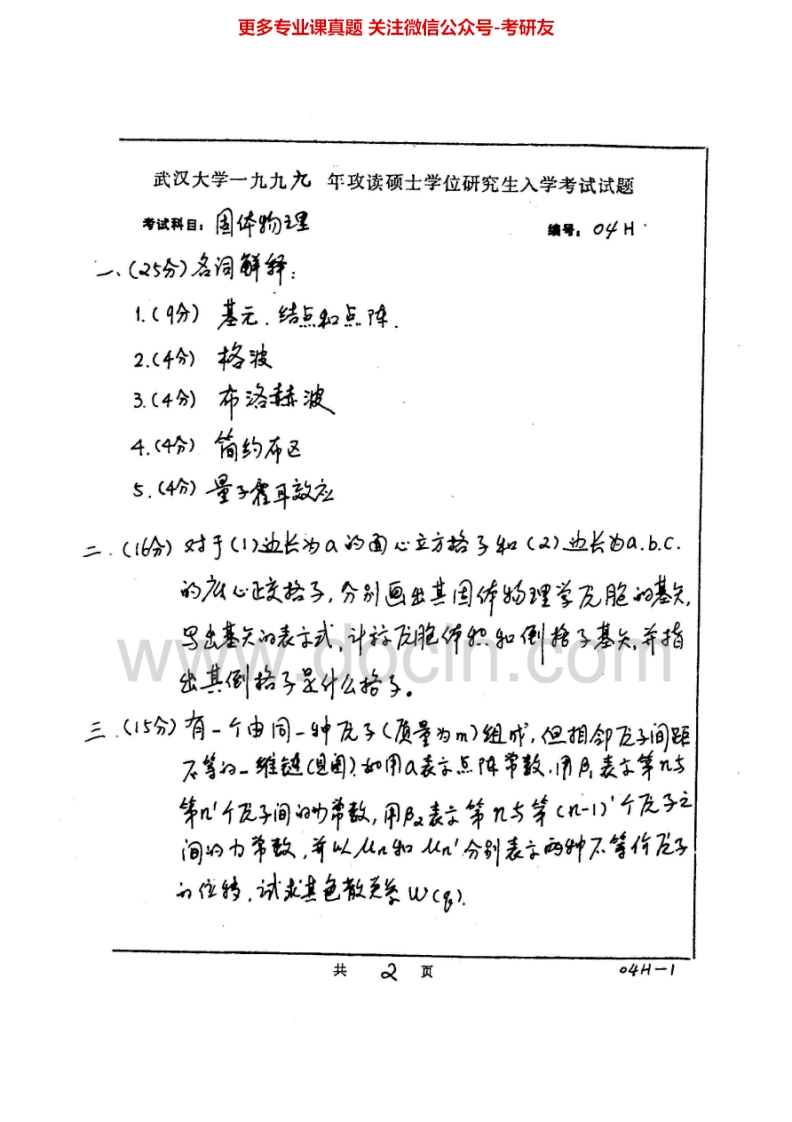 更多专业课真题 关注微信公众号-考研友
武汉大学一九九九 年攻读硕士学位研究生入学考试试题
考试科目：固体物理 编号：04H
一、(25分)名词解释：
1.(9分) 基元、结点和点阵.
2.(4分) 格波
3.(4分) 布洛赫波
4.(4分) 简约布区
5.(4分) 量子霍耳效应
二.(16分) 对于(1)边长为a的面心立方格子和(2)边长为a.b.c.
的底心正交格子,分别画出其固体物理学原胞的基矢,
写出基矢的表示式,计祘原胞体积和倒格子基矢,并指
出其倒格子是什么格子。
www.docin.com
三.(15分) 有一个由同一种原子(质量为m)组成,但相邻原子间距
不等的一维链(见图).如用a表示点阵常数,用β₁表示第n与
第n'个原子间的力常数,用β₂表示第n与第(n-1)'个原子之
间的力常数,并以μn和μn'分别表示两种不等价原子
的位移,试求其色散关系ω(q).
共 2 页 04H-1